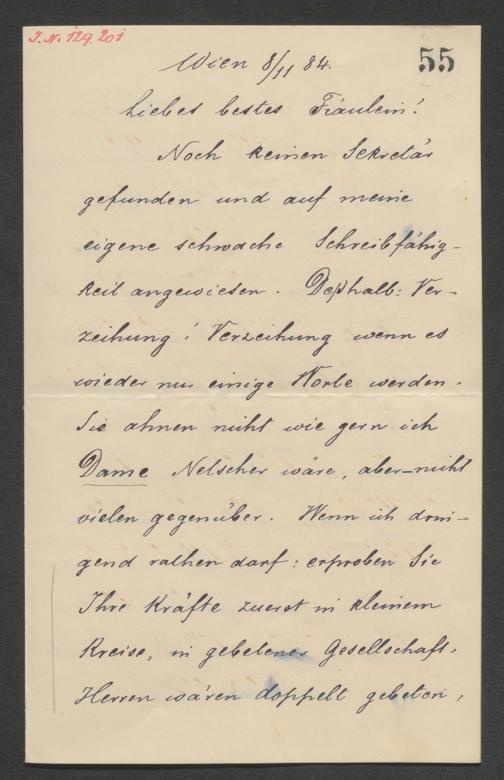 J. N. 129.201
55
Wien 8/11 84.
Liebes bestes Fräulein!
Noch keinen Sekretär
gefunden und auf meine
eigene schwache Schreibfähig-
keit angewiesen. Deßhalb: Ver-
zeihung! Verzeihung wenn es
wieder nur einige Worte werden.
Sie ahnen nicht wie gern ich
Dame Nelscher wäre, aber–nicht
vielen gegenüber. Wenn ich drin-
gend rathen darf: erproben Sie
Ihre Kräfte zuerst in kleinem
Kreise, in gebetener Gesellschaft.
Herren wären doppelt gebeten,